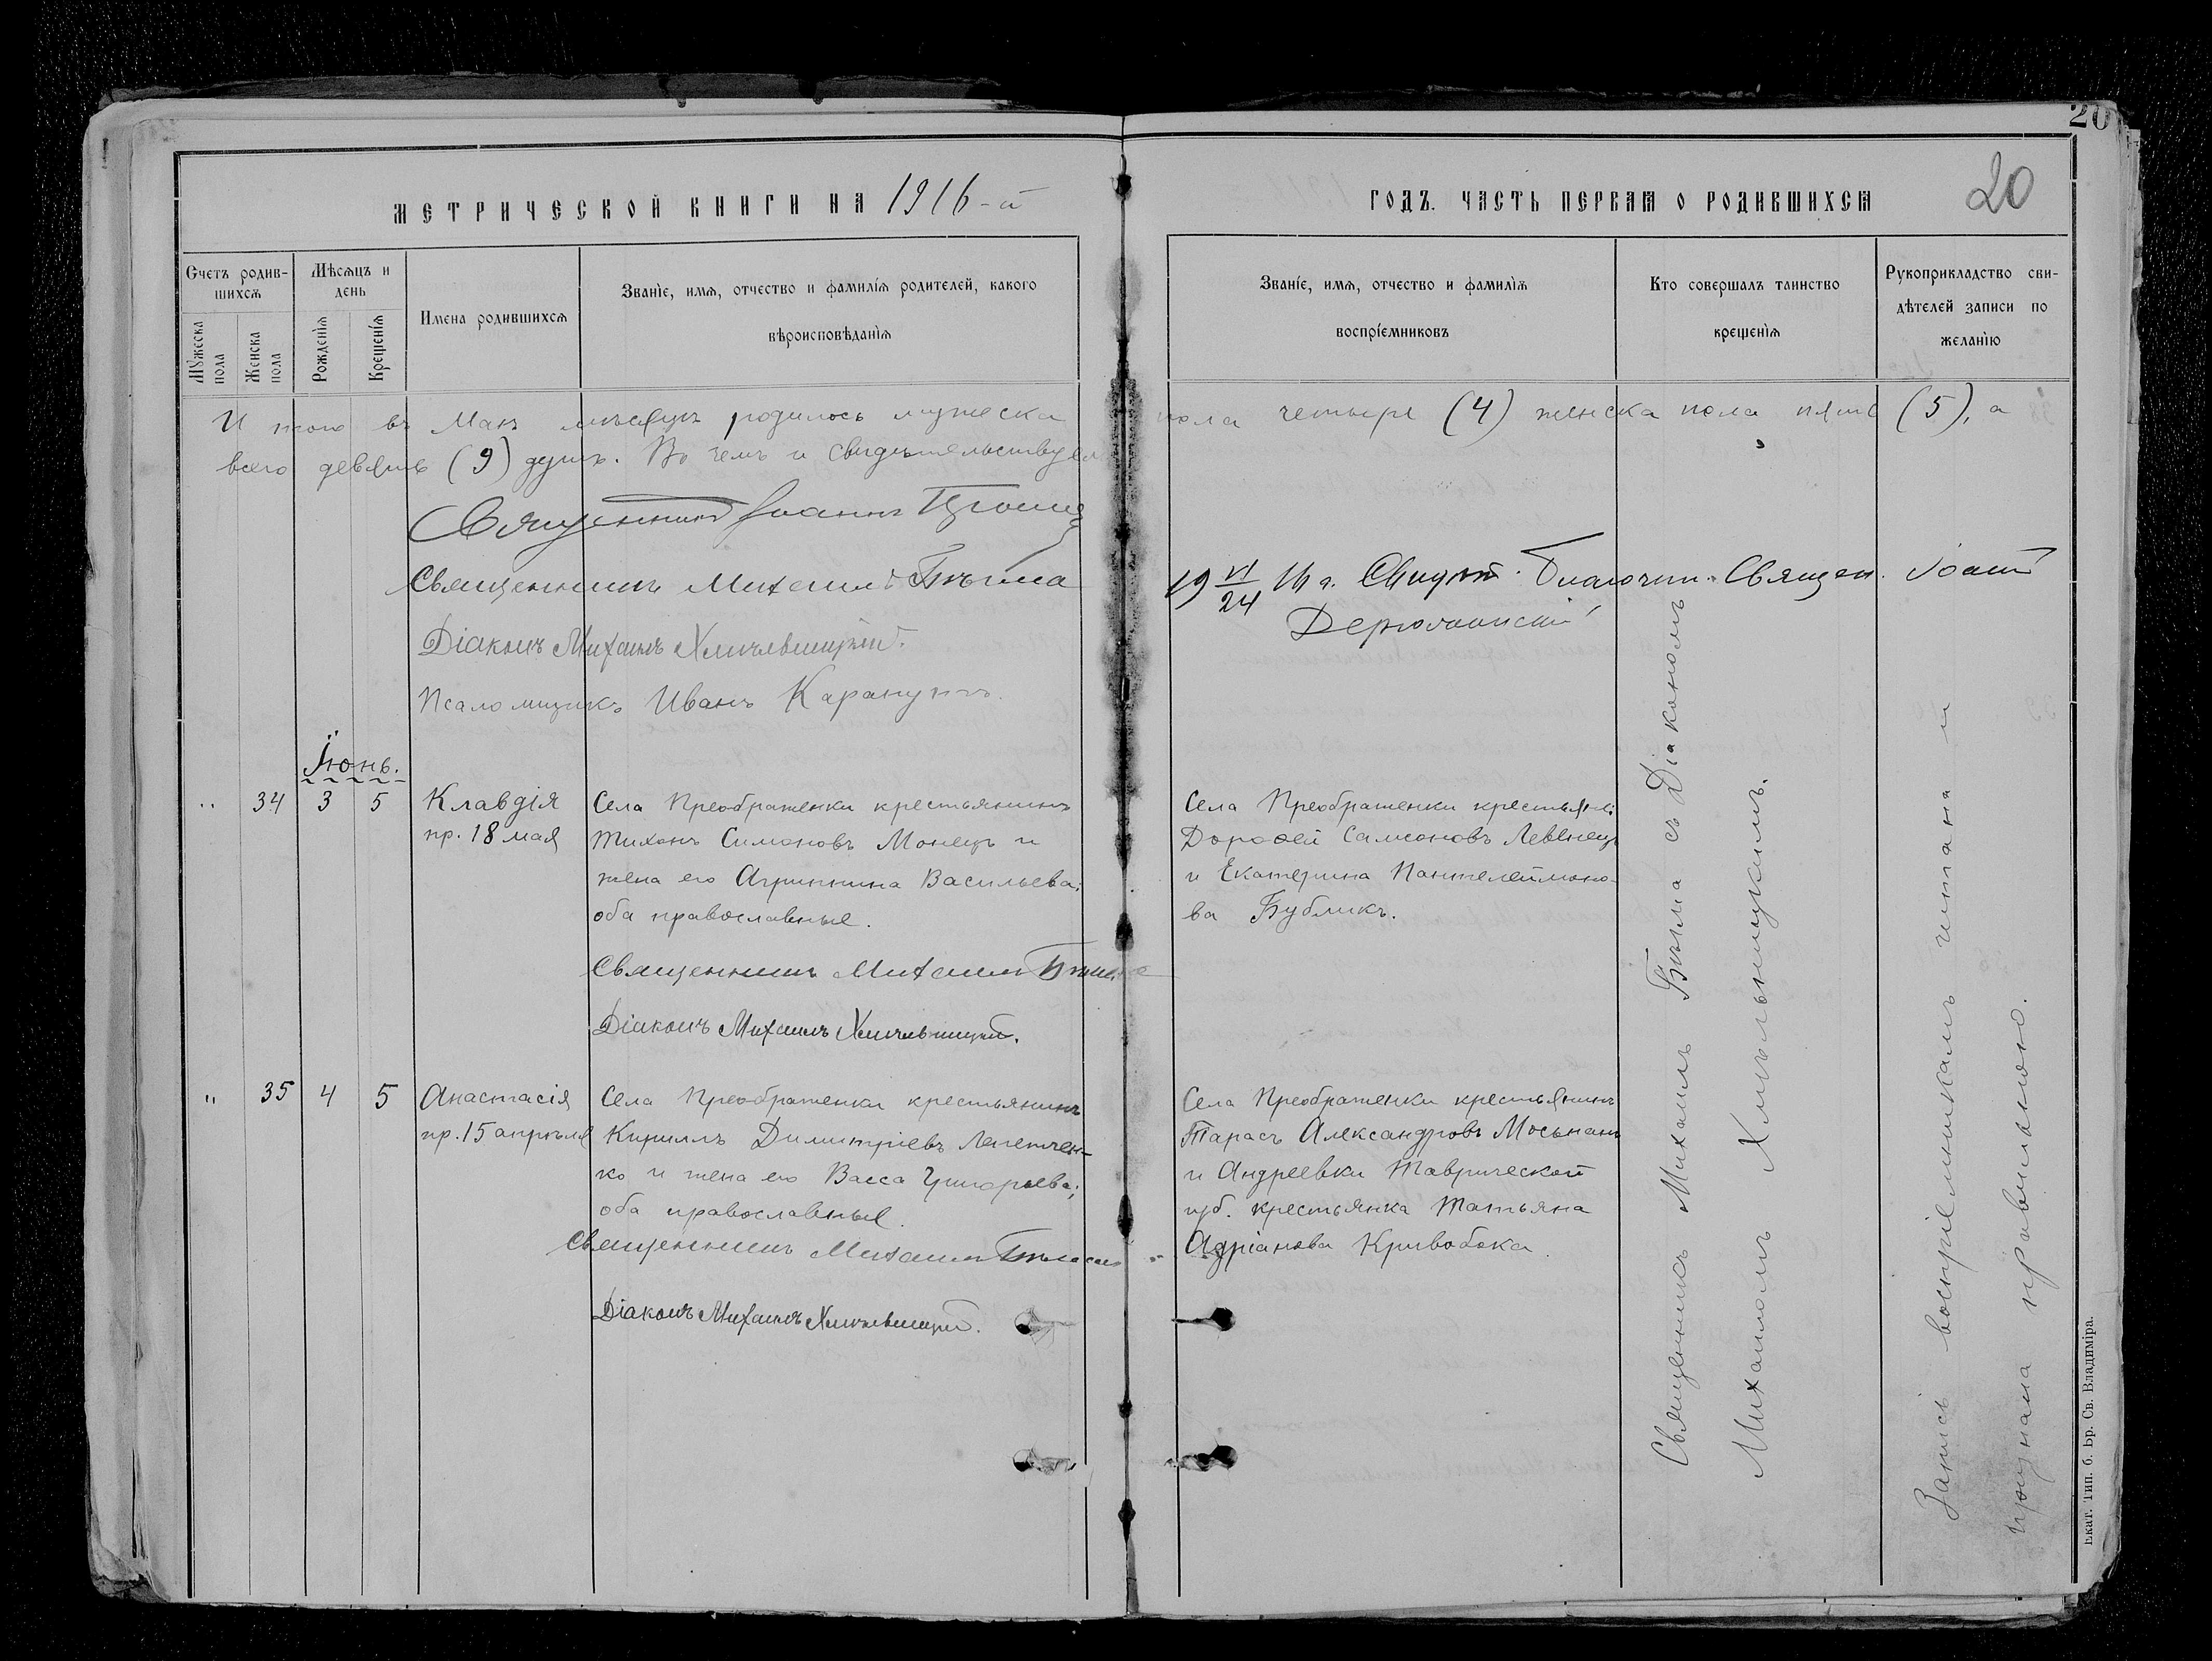 20
МЕТРИЧЕСКОЙ КНИГИ НА 1916-й
ГОДЪ. ЧАСТЬ ПЕРВАЯ О РОДИВШИХСЯ
20
Счетъ родив-
шихся
Мѣсяцъ и
день
Мужеска
пола
Женска
пола
Рожденія
Крещенія
Имена родившихся
Званіе, имя, отчество и фамилія родителей, какого
вѣроисповѣданія
Званіе, имя, отчество и фамилія
воспріемниковъ
Кто совершалъ таинство
крещенія
Рукоприкладство сви-
дѣтелей записи по
желанію
И того въ Маѣ мѣсяцѣ родилось мужеска пола четыре (4) женска пола пять (5), а
всего девять (9) душъ. Въ чемъ и свидѣтельствуемъ
Священникъ Іоаннъ
Священникъ Михаилъ Бѣлма
Діаконъ Михаилъ Хмѣльницкій.
Псаломщикъ Иванъ
19 VI/24 16 г. Свидѣт. Благочин. Священ. Іоаннъ
Іюнь.
" 34 3 5 Клавдія
пр. 18 мая
Села Преображенки крестьянинъ
Тихонъ Симоновъ Монецъ и
жена его Агриппина Васильева;
оба православные.
Священникъ Михаилъ
Діаконъ Михаилъ Хмѣльницкій.
Села Преображенки крестьяне:
Дороѳей Самсоновъ Левенецъ
и Екатерина Пантелеймоно-
ва Бубликъ.
" 35 4 5 Анастасія
пр. 15 апрѣля
Села Преображенки крестьянинъ
Кириллъ Димитріевъ Лепетчен-
ко и жена его Васса Григорьева;
оба православные.
Священникъ Михаилъ
Діаконъ Михаилъ Хмѣльницкій.
Села Преображенки крестьянинъ
Тарасъ Александровъ Мосьпанъ
и Андреевки Таврической
губ. крестьянка Татьяна
Адріанова Кривобока.
Священникъ Михаилъ Бѣлма съ Діакономъ
Михаиломъ Хмѣльницкимъ.
Запись воспріемникамъ читана и
признана правильною.
Екат. Тип. б. Бр. Св. Владиміра.